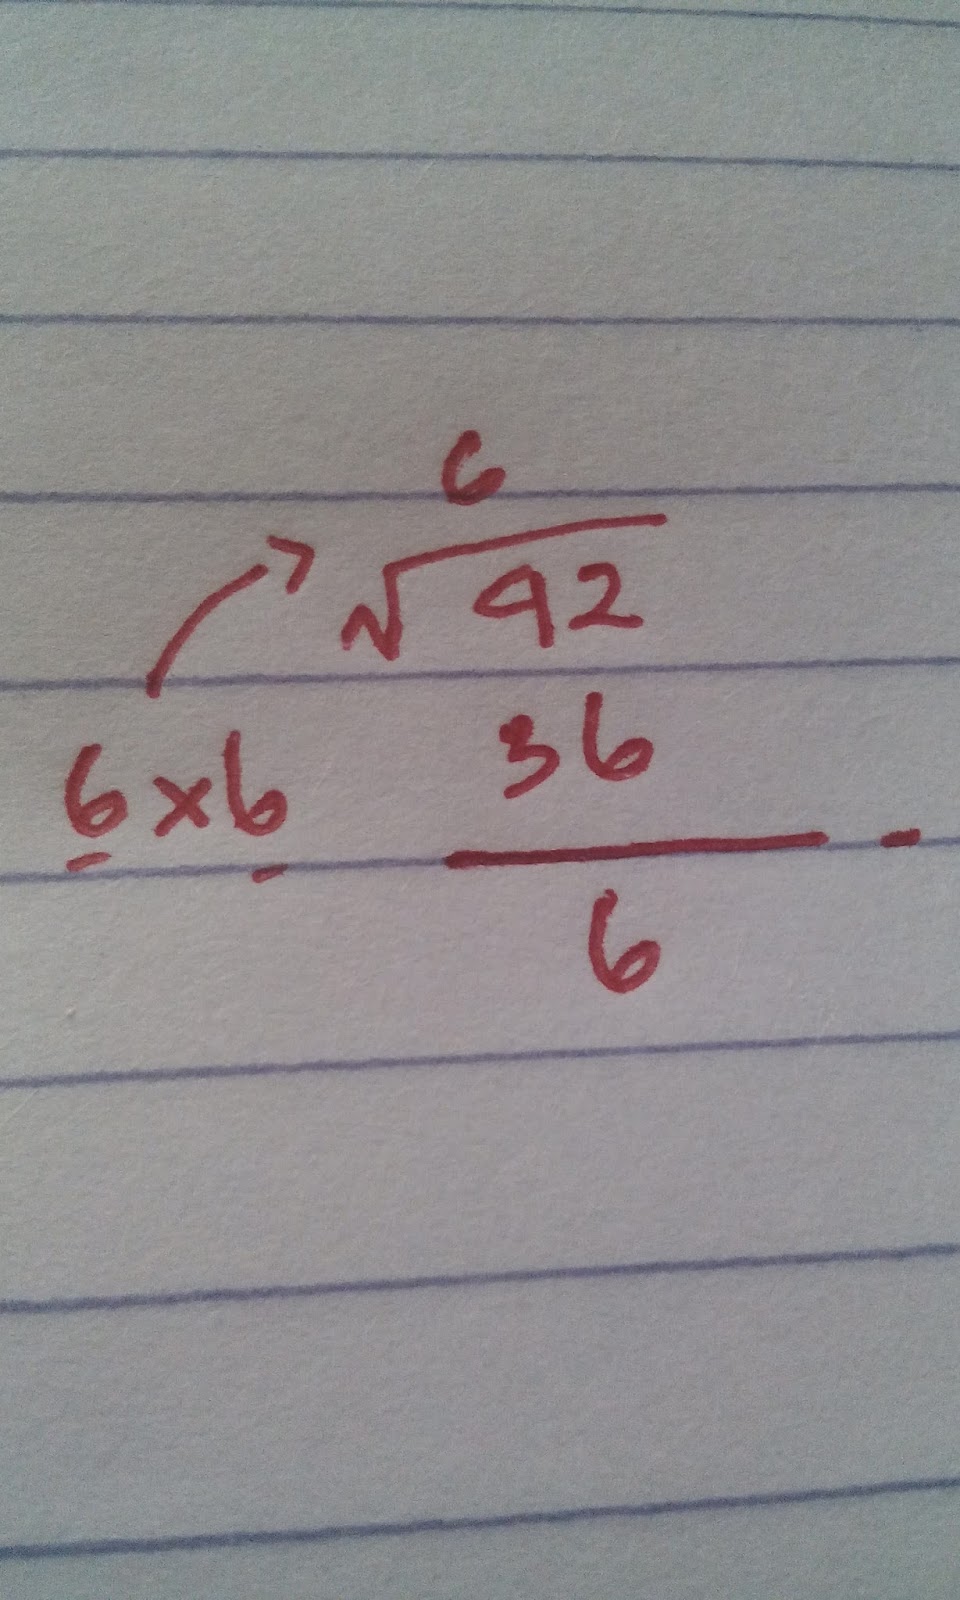 6
√42
6x6 36
-
6